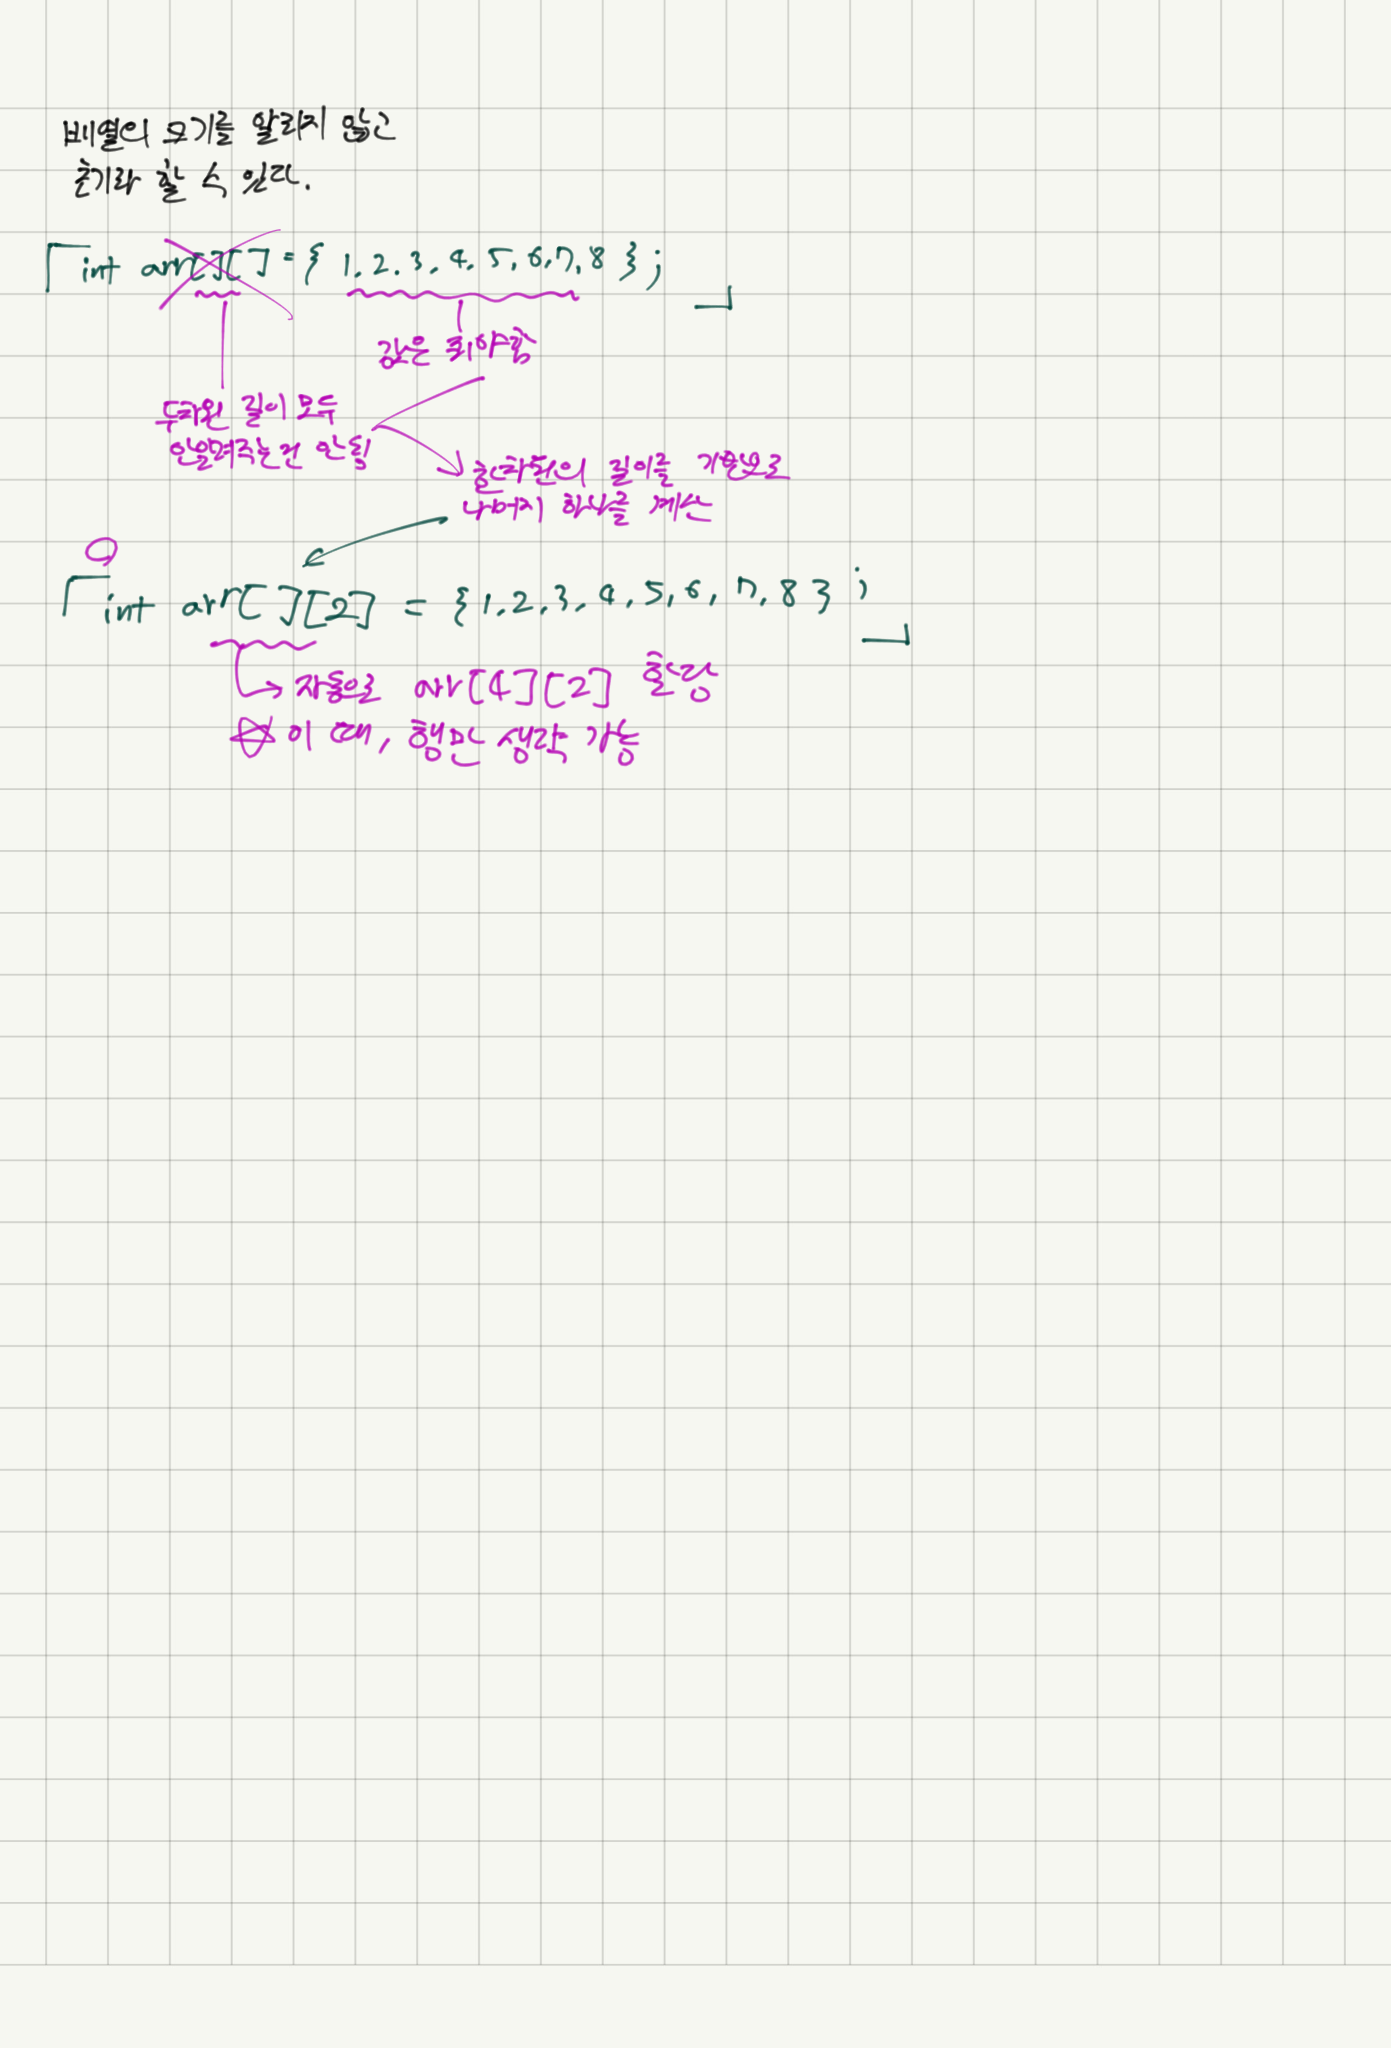 배열의 크기를 알리지 않고
초기화 할 수 있다.
int arr[][] = { 1, 2, 3, 4, 5, 6, 7, 8 };
값은 줘야함
두차원 길이 모두
안알려주는건 안됨
한차원의 길이를 기준으로
나머지 하나를 계산
int arr[][2] = {1, 2, 3, 4, 5, 6, 7, 8 };
자동으로 arr[4][2] 할당
이 때, 행만 생략 가능